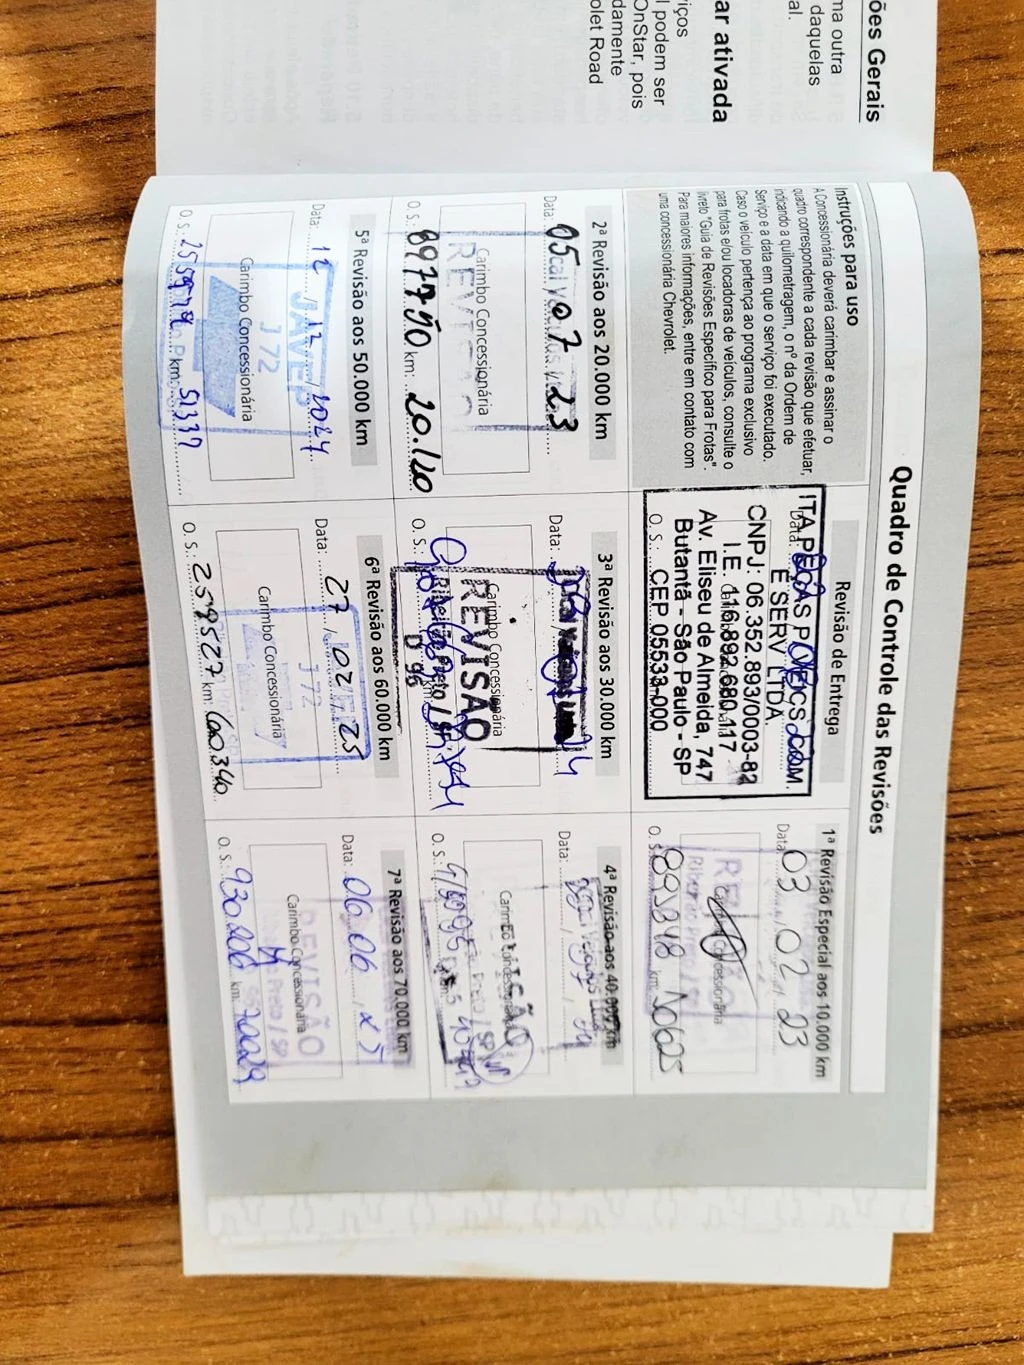 ões Gerais
ma outra
daquelas
al.
ar ativada
iços
l podem ser
OnStar, pois
damente
olet Road
Quadro de Controle das Revisões
Instruções para uso
A Concessionária deverá carimbar e assinar o
quadro correspondente a cada revisão que efetuar,
indicando a quilometragem, o nº da Ordem de
Serviço e a data em que o serviço foi executado.
Caso o veículo pertença ao programa exclusivo
para frotas e/ou locadoras de veículos, consulte o
livreto "Guia de Revisões Específico para Frotas".
Para maiores informações, entre em contato com
uma concessionária Chevrolet.
Revisão de Entrega
Data:
ITA PEÇAS P/ VEICS COM.
E SERV LTDA
CNPJ: 06.352.893/0003-82
I.E. 116.892.680.117
Av. Eliseu de Almeida, 747
Butantã - São Paulo - SP
CEP 05533-000
O. S.:
1ª Revisão Especial aos 10.000 km
Data: 03 02 23
Carimbo Concessionária
Ribeirão Preto / SP
O. S.: 895348 km:
2ª Revisão aos 20.000 km
Data: 05 07 23
Carimbo Concessionária
REVISÃO
O. S.: 897790 km: 20.120
3ª Revisão aos 30.000 km
Data:
Carimbo Concessionária
REVISÃO
Ribeirão Preto / SP
D 96
O. S.: km:
4ª Revisão aos 40.000 km
Data:
Carimbo Concessionária
REVISÃO
Preto / SP
O. S.:
5ª Revisão aos 50.000 km
Data: 12 / 12 / 2024
JAVEP
J 72
Carimbo Concessionária
O. S.: km: 51337
6ª Revisão aos 60.000 km
Data: 27 / 02 / 25
J 72
Carimbo Concessionária
O. S.: 2595527 km: 60.340
7ª Revisão aos 70.000 km
Data: 06 06 / 25
REVISÃO
Carimbo Concessionária
Preto / SP
O. S.: 930.206 km: